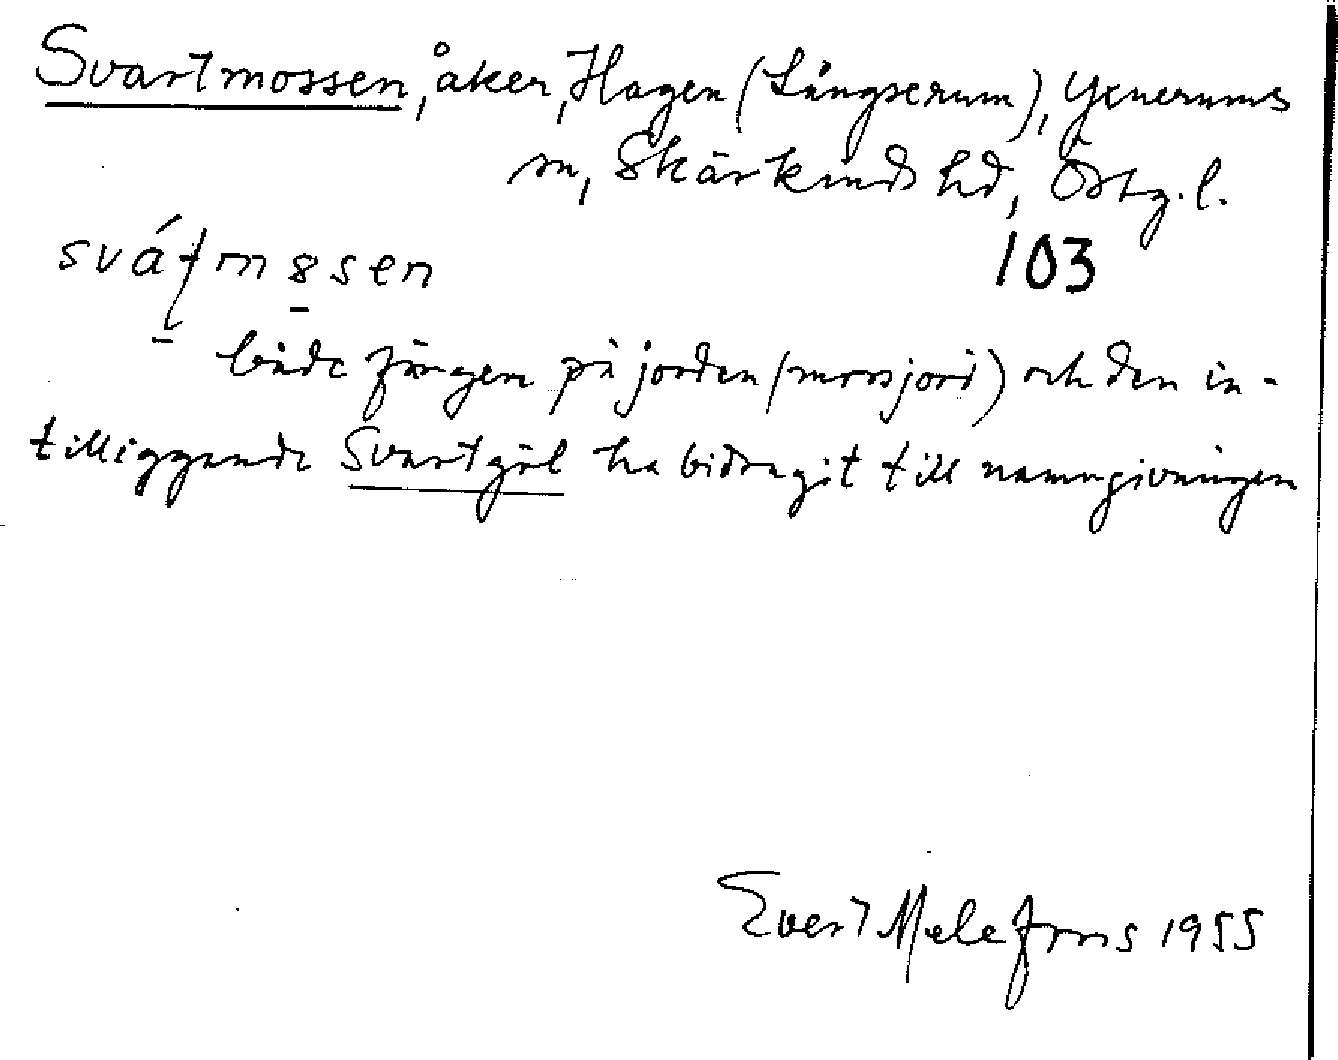 Svartmossen, åker, Hagen (Långserum), Yxnerums
sn, Skärkinds hd, Östg.l.
103
både färgen på jorden (mossjord) och den in-
tilliggande Svartgöl ha bidragit till namngivningen
Evert Melefors 1955